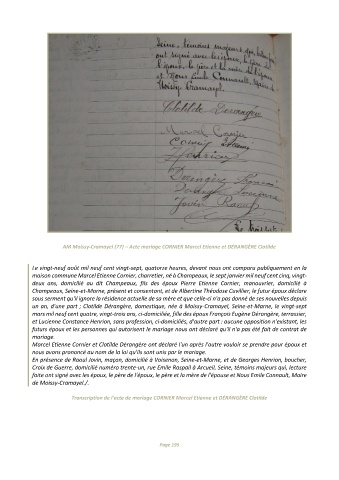 Seine, témoins majeurs qui, lecture faite
ont signé avec les époux, le père de
l'époux, le père et la mère de l'épouse
et Nous Emile Connault, Maire
de Moissy-Cramayel.
Clotilde Dérangère
Marcel Cornier
Cornier Etienne
Henrion
Dérangère François
AM Moissy-Cramayel (77) – Acte mariage CORNIER Marcel Etienne et DÉRANGÈRE Clotilde
Le vingt-neuf août mil neuf cent vingt-sept, quatorze heures, devant nous ont comparu publiquement en la
maison commune Marcel Etienne Cornier, charretier, né à Champeaux, le sept janvier mil neuf cent cinq, vingt-
deux ans, domicilié au dit Champeaux, fils des époux Pierre Etienne Cornier, manouvrier, domicilié à
Champeaux, Seine-et-Marne, présent et consentant, et de Albertine Théodose Cuvillier, le futur époux déclare
sous serment qu'il ignore la résidence actuelle de sa mère et que celle-ci n'a pas donné de ses nouvelles depuis
un an, d'une part ; Clotilde Dérangère, domestique, née à Moissy-Cramayel, Seine-et-Marne, le vingt-sept
mars mil neuf cent quatre, vingt-trois ans, ci-domiciliée, fille des époux François Eugène Dérangère, terrassier,
et Lucienne Constance Henrion, sans profession, ci-domiciliés, d'autre part : aucune opposition n'existant, les
futurs époux et les personnes qui autorisent le mariage nous ont déclaré qu'il n'a pas été fait de contrat de
mariage.
Marcel Etienne Cornier et Clotilde Dérangère ont déclaré l'un après l'autre vouloir se prendre pour époux et
nous avons prononcé au nom de la loi qu'ils sont unis par le mariage.
En présence de Raoul Jovin, maçon, domicilié à Voisenon, Seine-et-Marne, et de Georges Henrion, boucher,
Croix de Guerre, domicilié numéro trente-un, rue Emile Raspail à Arcueil, Seine, témoins majeurs qui, lecture
faite ont signé avec les époux, le père de l'époux, le père et la mère de l'épouse et Nous Emile Connault, Maire
de Moissy-Cramayel./.
Transcription de l'acte de mariage CORNIER Marcel Etienne et DÉRANGÈRE Clotilde